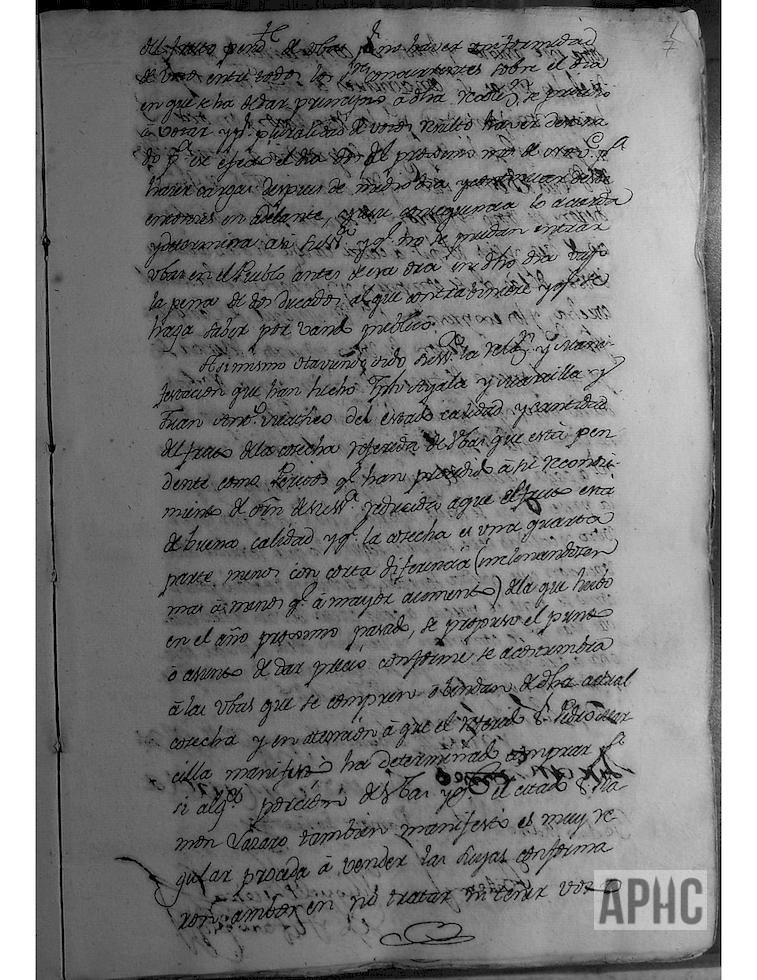 del fruto pend.te de ubas p.r no haver conformidad
de votos entre todos los s.res concurrentes sobre el dia
en que se ha de dar principio à dha recoleccⁿ, se procedio
à votar y p.r pluralidad de votos resultò haver determina
do p.a ese efecto el dia dos del proximo mes de oct.re p.a
hacer cargas despues de medio dia y continuar desde
entonces en adelante, y en su consequencia lo acuerda
y determina asi su ss.a y q.e no se puedan entrar
ubas en el Pueblo antes de esa ora en dho dia bajo
la pena de dos ducados al que contraviniere y q.e se
haga saber por vando publico.
Asimismo otaviendo oido su ss.a la relaz.on y mani-
festacion que han hecho Ayala y Mancilla y
Juan Ant.o Pacheco del estado calidad y cantidad
del fruto de la cosecha referida de ubas que está pen
dente como Peritos q.e han procedido à su reconoci-
miento de orn de su ss.a reducida a que el fruto está
de buena calidad y q.e la cosecha es una quarta
parte menos con corta diferencia (inclinandose
mas à menos q.e à mayor aumento) de la que hubo
en el año proximo pasado, se propuso el punto
ò asunto de dar precio conforme se acostumbra
à las ubas que se compren ò vendan de dha actual
cosecha y en atencion à que el referido s.r Pedro Man
cilla manifestò ha determinado comprar p.a
si alg.a porcion de ubas y q.e el citado s.r Ra
mon Lazaro tambien manifesto es muy re
gular proceda à vender las suyas conforma
ron ambos en no tratar ni tener voto
APHC